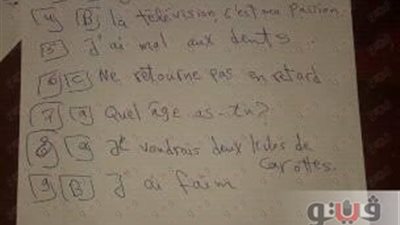 4 B la télévision, c'est ma passion
5 J'ai mal aux dents.
6 C Ne retourne pas en retard
7 a Quel âge as-tu?
8 a Je voudrais deux kilos de
Carottes.
9 B J'ai faim
ڤيتو